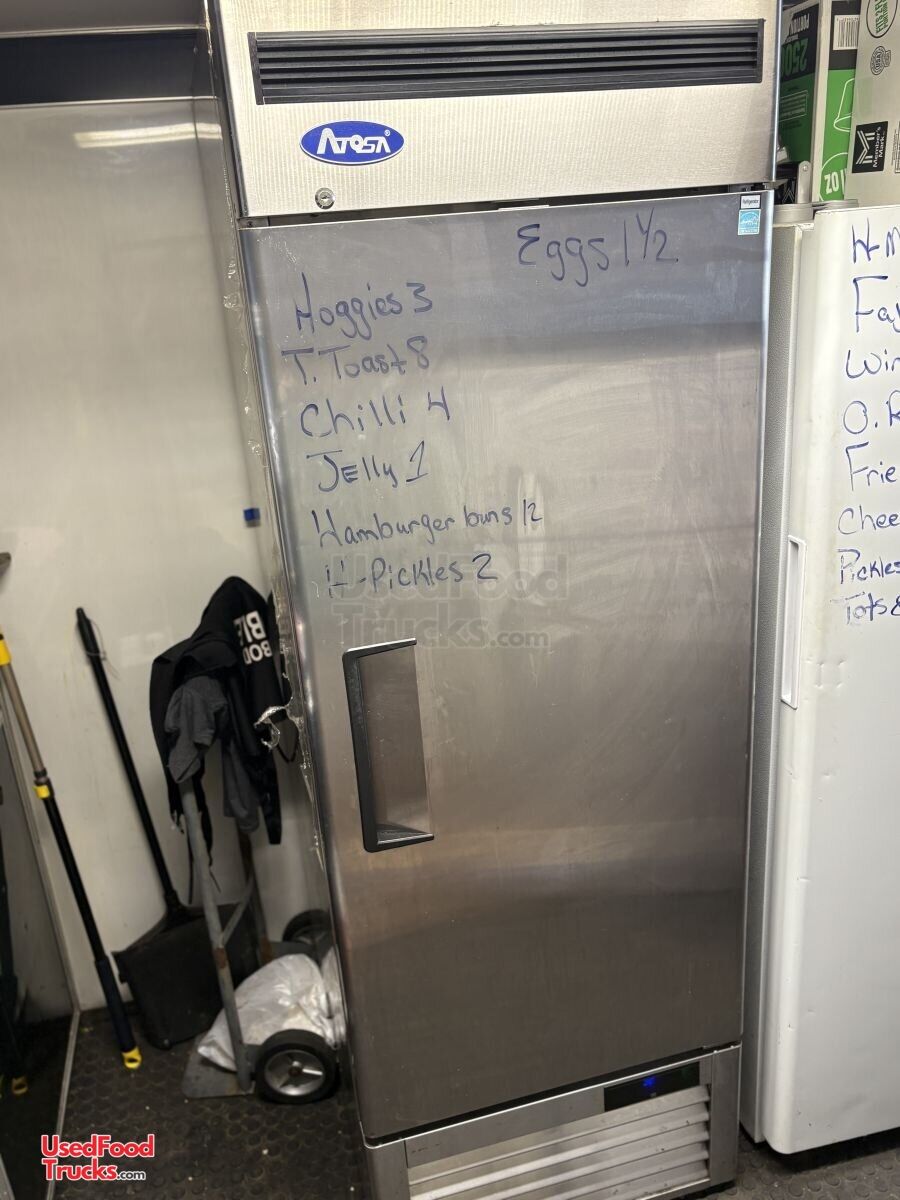 Atosa
Refrigerator
Eggs 1 1/2
Hoggies 3
T. Toast 8
Chilli 4
Jelly 1
Hamburger buns 12
H-Pickles 2
UsedFood
Trucks.com
250
OZ
Member's
Mark
Pickles
Tots
UsedFood
Trucks.com